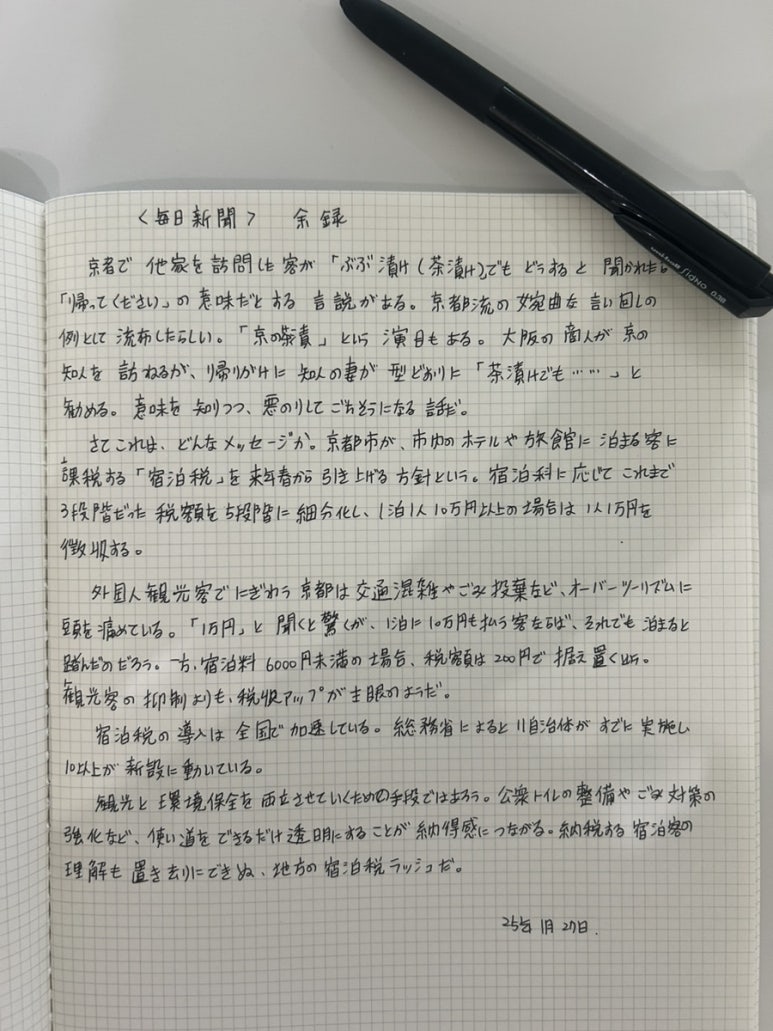 〈毎日新聞〉 余録
京者で 他家を訪問した客が「ぶぶ漬け(茶漬け)でも どうすると 聞かれたら
「帰ってください」の意味だとする 言説がある。京都流の婉曲な言い回しの
例として 流布したらしい。「京の茶漬」という 演目もある。大阪の商人が京の
知人を訪ねるが、帰りがけに 知人の妻が 型どおりに「茶漬けでも……」と
勧める。意味を知りつつ、悪のりして ごちそうになる 話だ。
さてこれは、どんなメッセージか。京都市が、市内のホテルや旅館に泊まる客に
課税する「宿泊税」を来年春から引き上げる方針という。宿泊料に応じて これまで
3段階だった 税額を5段階に 細分化し、1泊1人10万円以上の場合は1人1万円を
徴収する。
外国人観光客でにぎわう京都は交通混雑やごみ投棄など、オーバーツーリズムに
頭を痛めている。「1万円」と聞くと驚くが、1泊に10万円も払う客ならば、それでも泊まると
踏んだのだろう。一方、宿泊料6000円未満の場合、税額は200円で据え置く
観光客の抑制よりも、税収アップが主眼のようだ。
宿泊税の導入は全国で加速している。総務省によると11自治体がすでに実施し
10以上が新設に動いている。
観光と環境保全を両立させていくための手段ではあろう。公衆トイレの整備やごみ対策の
強化など、使い道をできるだけ透明にすることが納得感につながる。納税する宿泊客の
理解も置き去りにできぬ、地方の宿泊税ラッシュだ。
25年1月27日.
uni-ball Signo 0.38